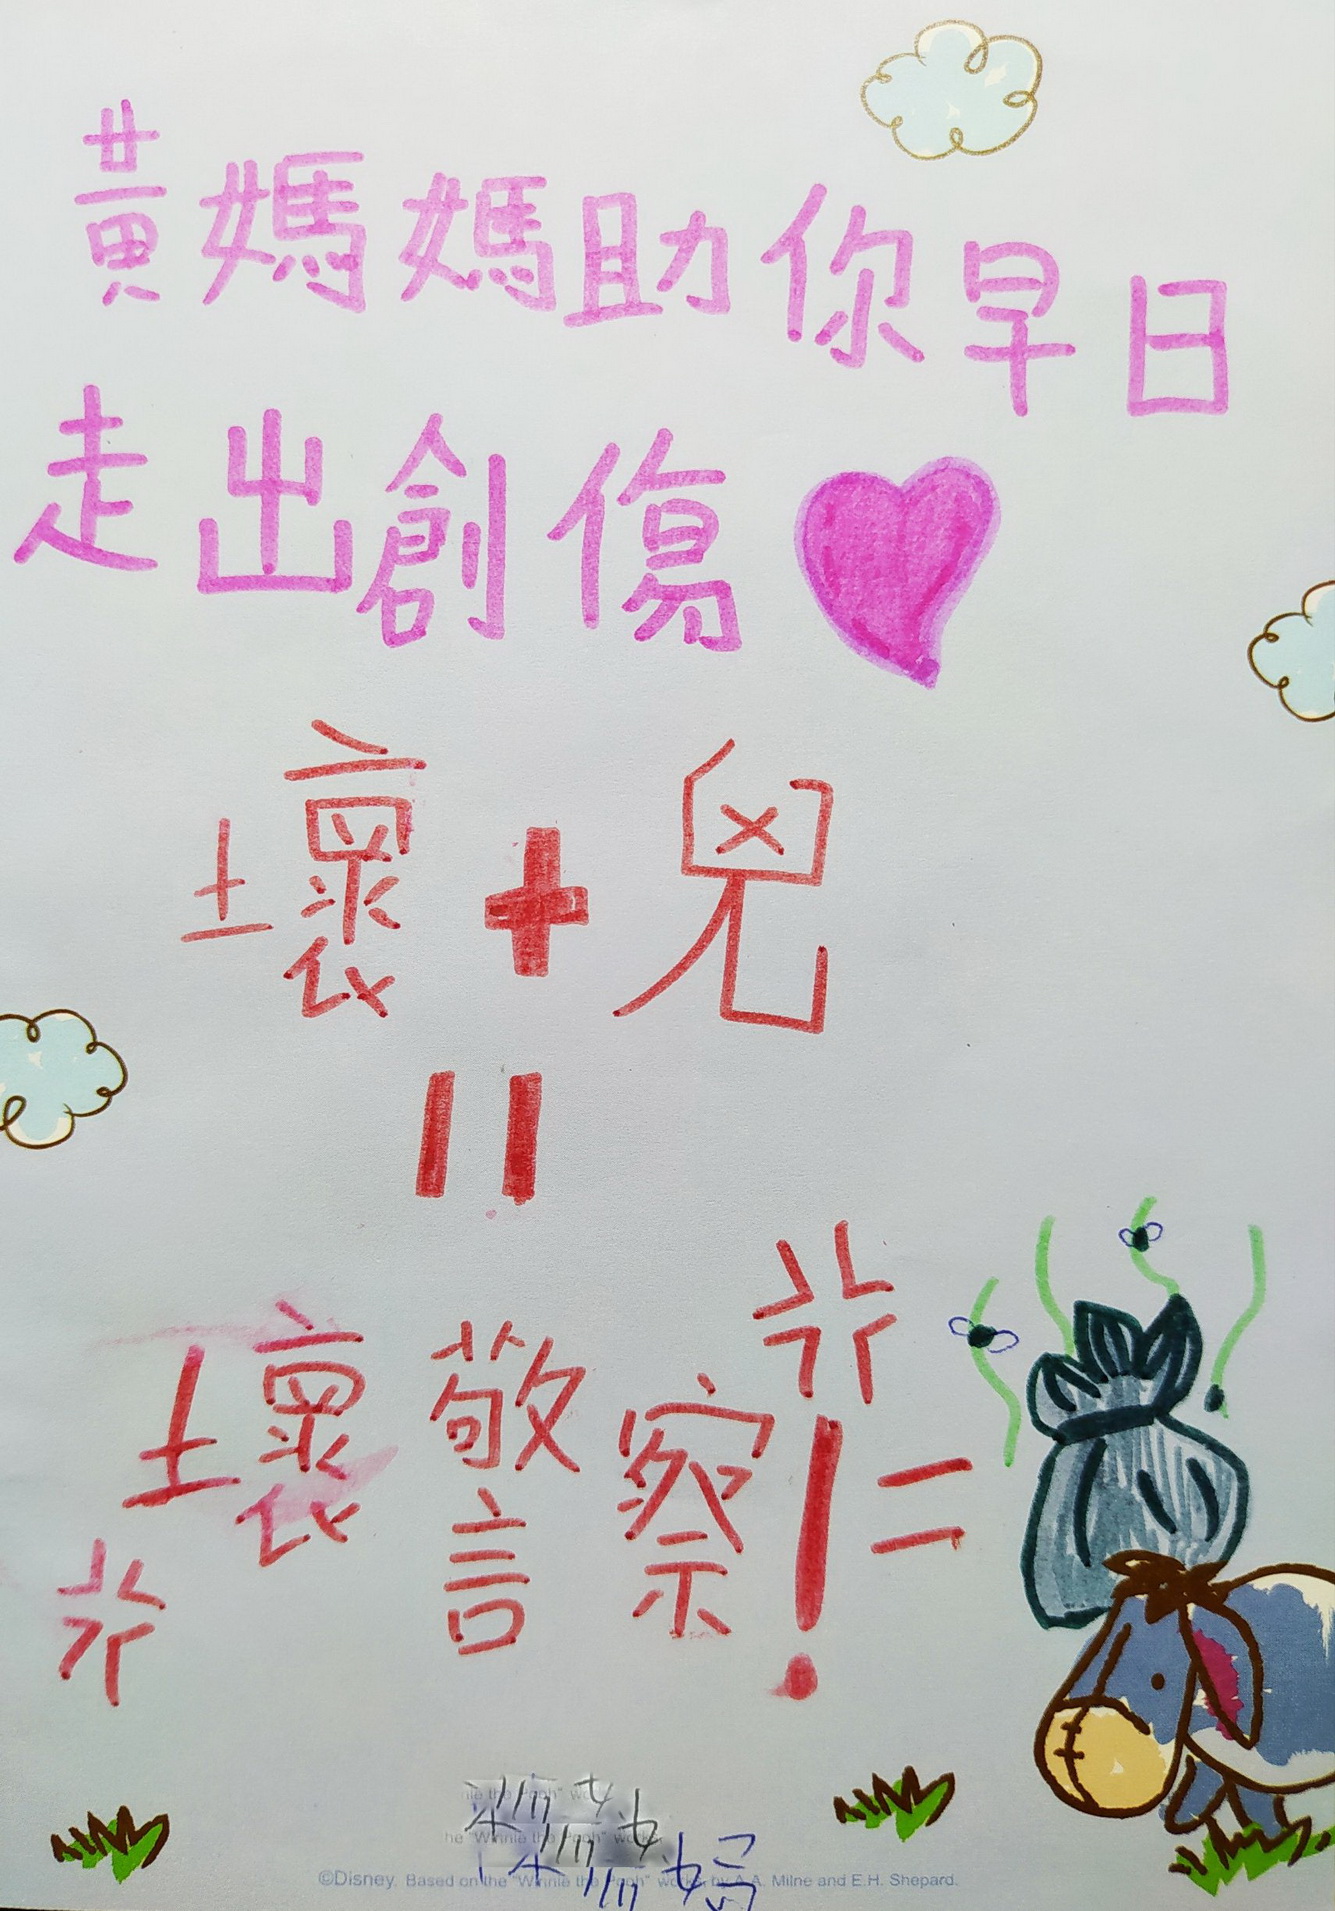 黃媽媽助你早日
走出創傷
壞+兒
=
壞警察!=
©Disney. Based on the "Winnie the Pooh" works, by A.A. Milne and E.H. Shepard.